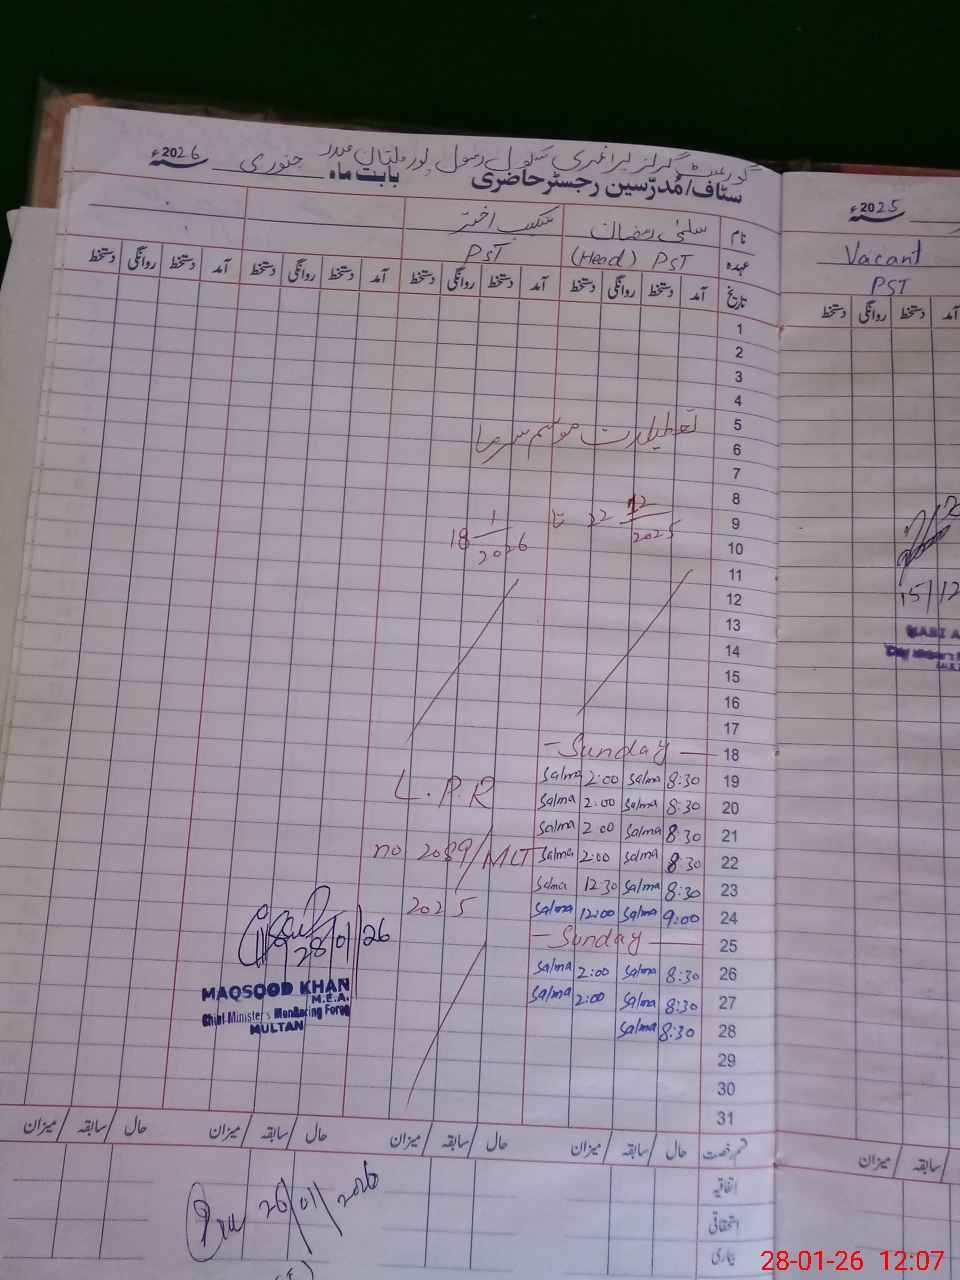 گورنمنٹ گرلز پرائمری سکول رسول پور ملتان صدر
سٹاف/مُدرّسین رجسٹر حاضری بابت ماہ جنوری 2026ء
نام سلمیٰ رمضان اختر
عہدہ PST (Head) PST
تاریخ آمد دستخط روانگی دستخط آمد دستخط روانگی دستخط آمد دستخط روانگی دستخط آمد دستخط روانگی دستخط
1
2
3
4
5
تعطیلات موسم سرما
6
7
8
9
22 12/2025 تا 18 1/2026
10
11
12
13
14
15
16
17
18 - Sunday -
19 8:30 Salma 2:00 Salma
L.P.R
20 8:30 Salma 2:00 Salma
21 8:30 Salma 2 00 Salma
22 8 30 Salma 2:00 Salma
no 2089/MLT
23 8:30 Salma 12 30 Salma
24 9:00 Salma 12:00 Salma
2025
25 - Sunday -
26 8:30 Salma 2:00 Salma
27 8:30 Salma 2:00 Salma
28 8:30 Salma
29
30
31
28/01/26
MAQSOOD KHAN
M.E.A.
Chief Minister's Monitoring Force
MULTAN
قسم رخصت حال /سابقہ /میزان حال /سابقہ /میزان حال /سابقہ /میزان حال /سابقہ /میزان
اتفاقیہ
استحقاقی
بیماری
26/01/2026
2025ء
Vacant
PST
آمد دستخط روانگی دستخط
15/12
NABI A
سابقہ /میزان
28-01-26 12:07